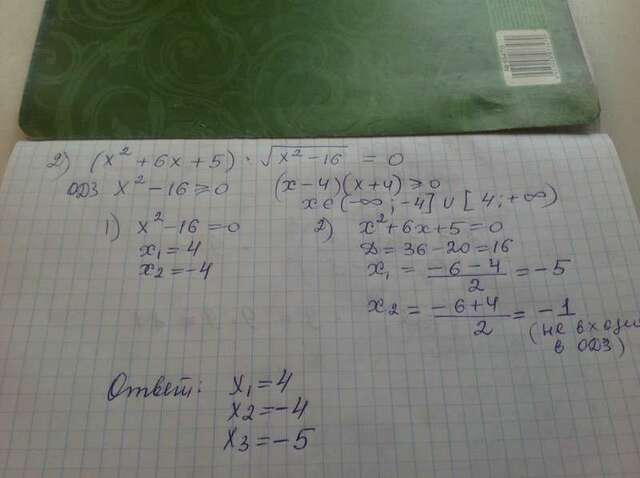 2) (x² + 6x + 5) · √(x² - 16) = 0
ОДЗ x² - 16 ≥ 0 (x - 4)(x + 4) ≥ 0
x ∈ (-∞; -4] ∪ [4; +∞)
1) x² - 16 = 0
x₁ = 4
x₂ = -4
2) x² + 6x + 5 = 0
D = 36 - 20 = 16
x₁ = (-6 - 4)/2 = -5
x₂ = (-6 + 4)/2 = -1
(не входи
в ОДЗ)
Ответ: x₁ = 4
x₂ = -4
x₃ = -5